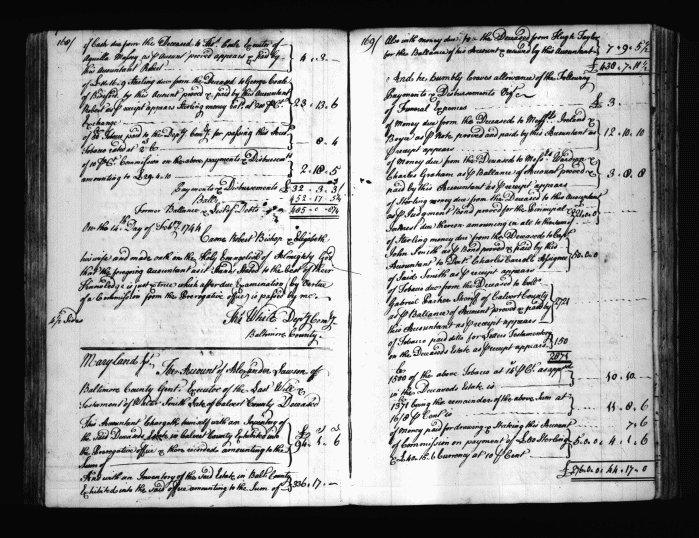 168/
of Cash due from the Deceased to Thos. Cook Executor of
Aquilla as Accot. proved appears & paid by
this Accountant Robert 4 . 3 . —
of Sterling due from the Deceased to George Cook
of Bideford by this Accot. proved & paid by this Accountant
Robert as receipt appears Sterling money
Exchange 23 . 13 . 6
of Tobacco paid to the Depty. Comy. for passing this Accot.
Tobacco rated at — 8 . 4
of 10 Ct. Commission on the above payments & Disbursemts.
amounting to £29.4.10 2 . 18 . 5
Payments & Disbursements £32 . 3 . 3
Balle. 452 . 17 . 5¼
Former Ballance & Debts 485 . 0 . 8¼
On the 14th. Day of Feb. 1744
Came Robert Bishop & Elizabeth
his wife and made oath on the Holy Evangelists of Almighty God
that the foregoing Accountant as it Stands Stated to the best of their
Knowledge is just & true which after due Examination by Vertue
of a Commission from the Prerogative office is passed by me
4½ Sides
White Depty. Comy.
Baltimore County
Maryland
The Account of Alexander Lawson of
Baltimore County Gent. Executor of the Last Will &
Testament of Smith Late of Calvert County Deceased
This Accountant Chargeth himself with an Inventory of
the said Deceaseds Estate in Calvert County Exhibited into
the Prerogative office & there recorded amounting to the
Sum of 94 . 1 . 6
And with an Inventory of the said Estate in Balt. County
Exhibited into the said office amounting to the Sum of 336 . 17 . —
169/
Also with money due to the Deceased from Hugh Taylor
for the Ballance of his Account & received by this Accountant 7 . 9 . 5½
£438 . 7 . 11½
And he humbly craves allowance of the Following
Payments & Disbursements Vizt.
of Funeral Expences £3 . —
of Money due from the Deceased to Messrs. Ireland &
Boyce as Note, proved and paid by this Accountant as
receipt appears 12 . 10 . 10
of Money due from the Deceased to Messrs. Wardrop &
Charles Graham as Ballance of Account proved &
paid by this Accountant as receipt appears 3 . 8 . 8
of Sterling money due from the Deceased to this Accountant
as Judgment Bond proved for the Principal &
Interest due thereon amounting in all to the Sum of
of Sterling money due from the Deceased to Capt.
John Smith as Bond proved & paid by this
Accountant to Doct. Charles Carroll Assignee
of Said Smith as receipt appears 50.0.0
of Tobacco due from the Deceased to
Gabriel Parker Sheriff of Calvert County
as Ballance of Account proved & paid by
this Accountant as receipt appears 2721
of Tobacco paid ditto for Letters Testamentary
on the Deceaseds Estate as receipt appears 150
2871
1500 of the above Tobacco at 14/ Ct. as apprd.
in the Deceaseds Estate is 10 . 10 . —
1371 being the remainder of the above Sum at
Cent is 11 . 8 . 6
of Money paid for drawing & Stating this Account 7 . 6
of Commission on payment of £50 Sterling
& £40.15.6 Currency at 10 Cent 5.0.0 4 . 1 . 6
£576.0.0 44 . 17 . 0